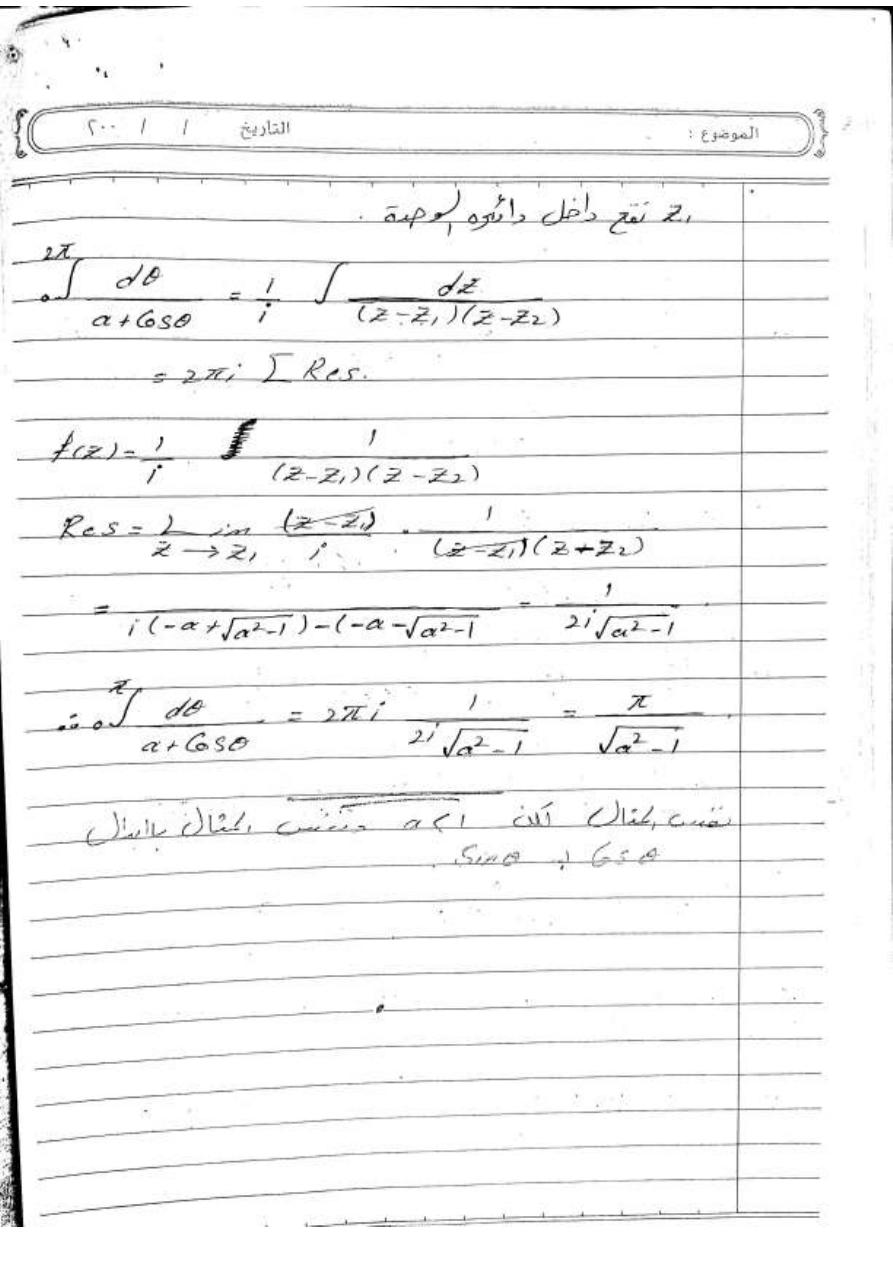 الموضوع : التاريخ / / ٢٠٠
Z₁ تقع داخل دائرة الوحدة .
₀∫^2π dθ/(a+Cosθ) = 1/i ∫ dz/((z-z₁)(z-z₂))
= 2πi Σ Res.
f(z) = 1/i 1/((z-z₁)(z-z₂))
Res = Lim z→z₁ (z-z₁)/i · 1/((z-z₁)(z+z₂))
= /(i(-a+√(a²-1))-(-a-√(a²-1)) = 1/(2i√(a²-1))
∴ ₀∫^π dθ/(a+Cosθ) = 2πi 1/(2i√(a²-1)) = π/√(a²-1)
نفس المثال a<1 ونفس المثال بابدال
Cosθ بـ Sinθ .